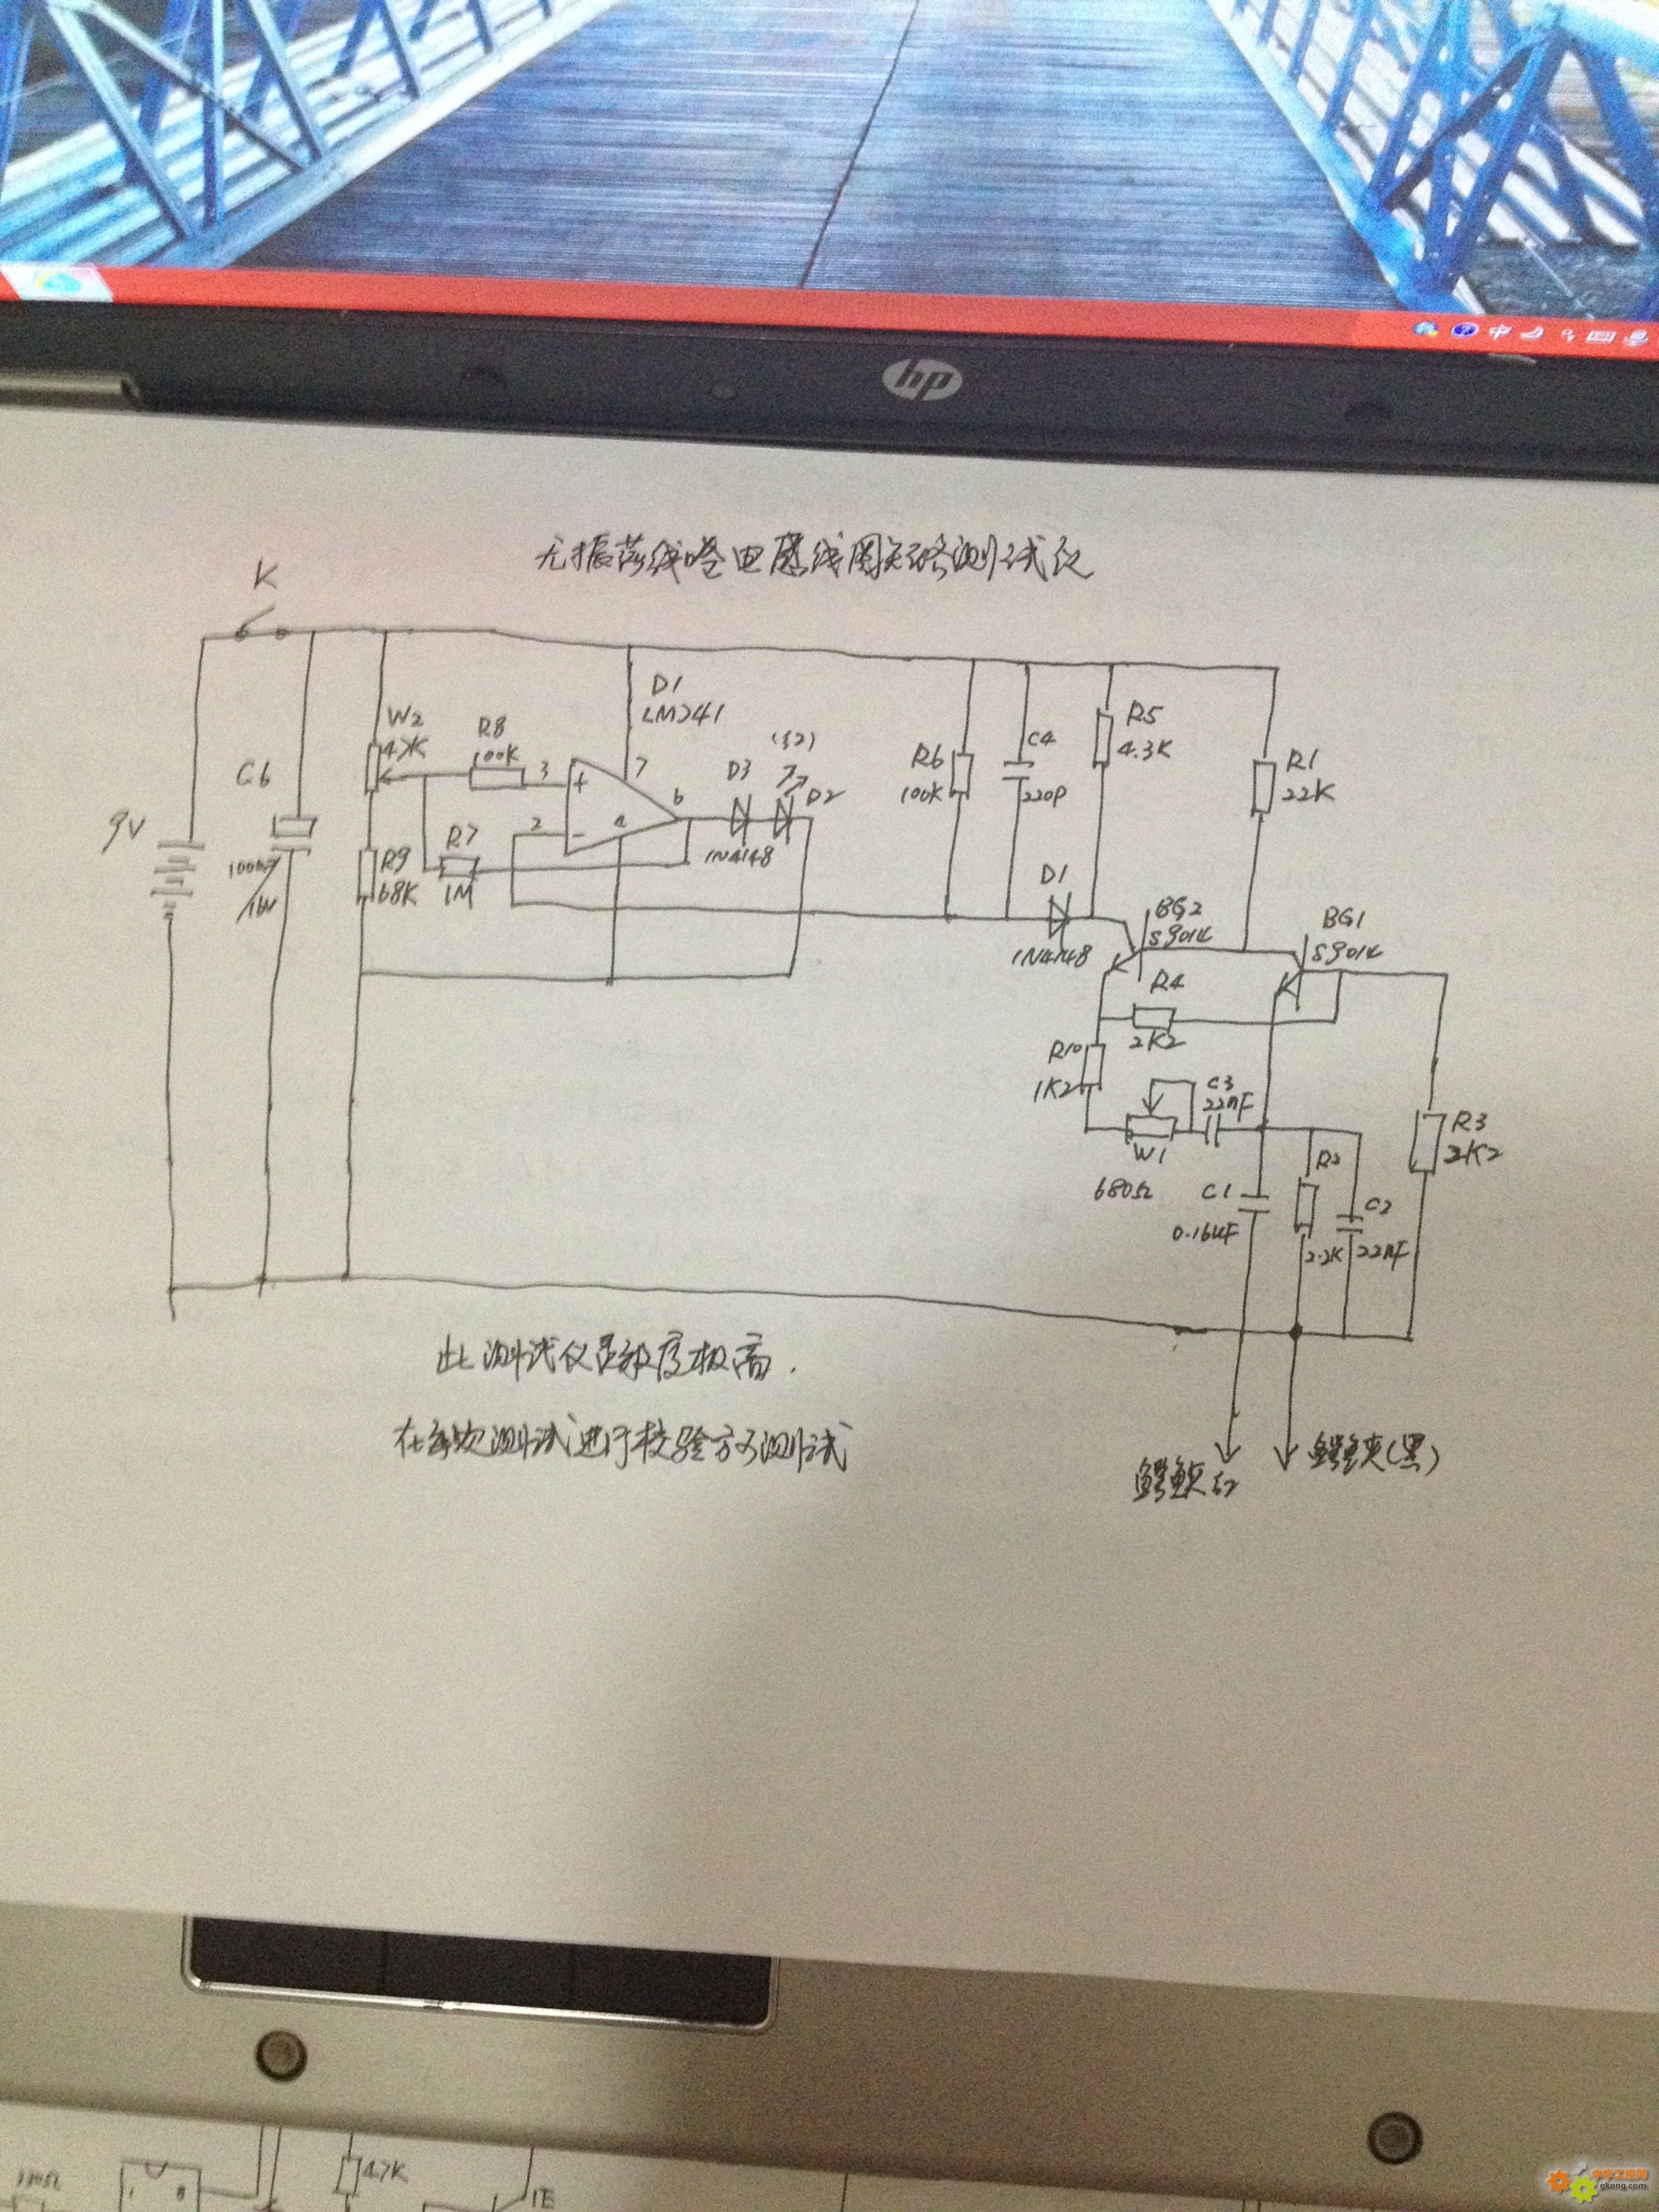 中
hp
无振荡线唸电感线圈短路测试仪
K
9V
C6
100uF
W2
47K
R9
68K
R8
100K
R7
1M
3
2
+
-
4
7
6
D1
LM741
D3
1N4148
D2
R6
100K
C4
220P
R5
4.3K
R1
22K
D1
1N4148
BG2
S9014
BG1
S9014
R4
2K2
R10
1K2
W1
680Ω
C3
22nF
C1
0.16uF
R2
2.2K
C2
22nF
R3
2K2
此测试仪灵敏度极高.
在每次测试进行校验方可测试
鳄鱼夹(黑)
47K
1
8
1E
gkong.com